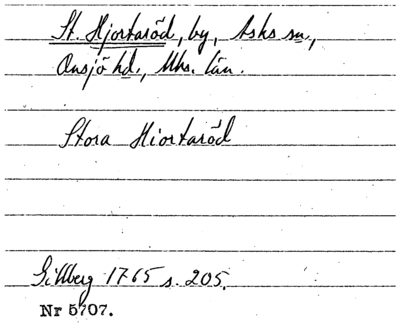 St. Hjortaröd, by, Asks sn.,
Onsjö hd., Mhs. län.
Stora Hiortaröd
Gillberg 1765 s. 205.
Nr 5707.